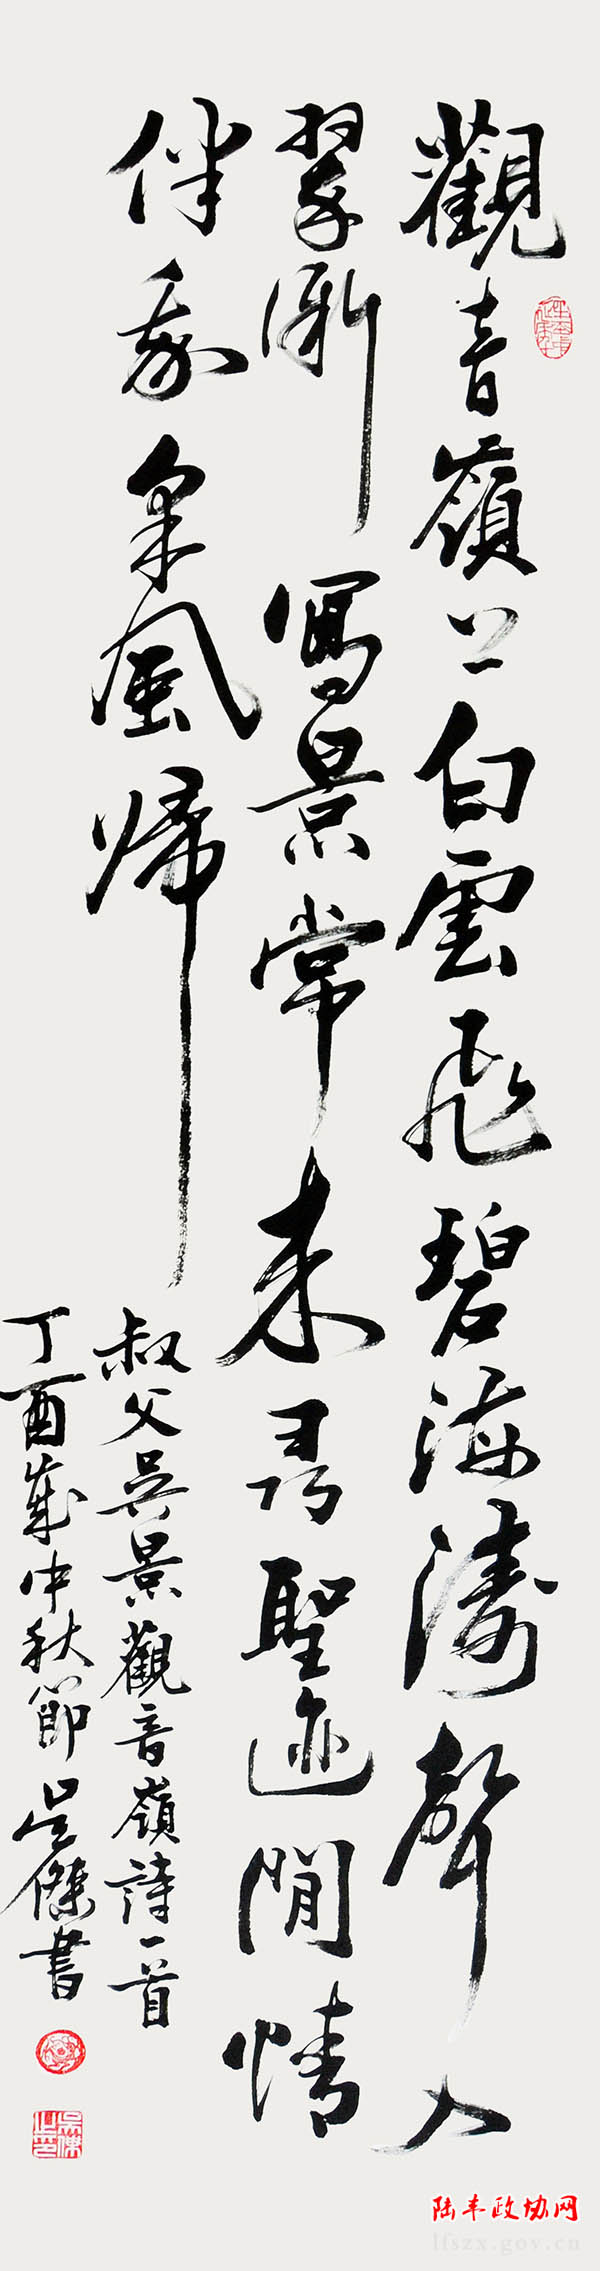 觀音嶺上白雲飛碧海濤聲入
翠微寫景常來尋聖迹閒情
伴我乘風歸
叔父吳景觀音嶺詩一首
丁酉歲中秋節吳傑書
陆丰政协网
lfszx.gov.cn